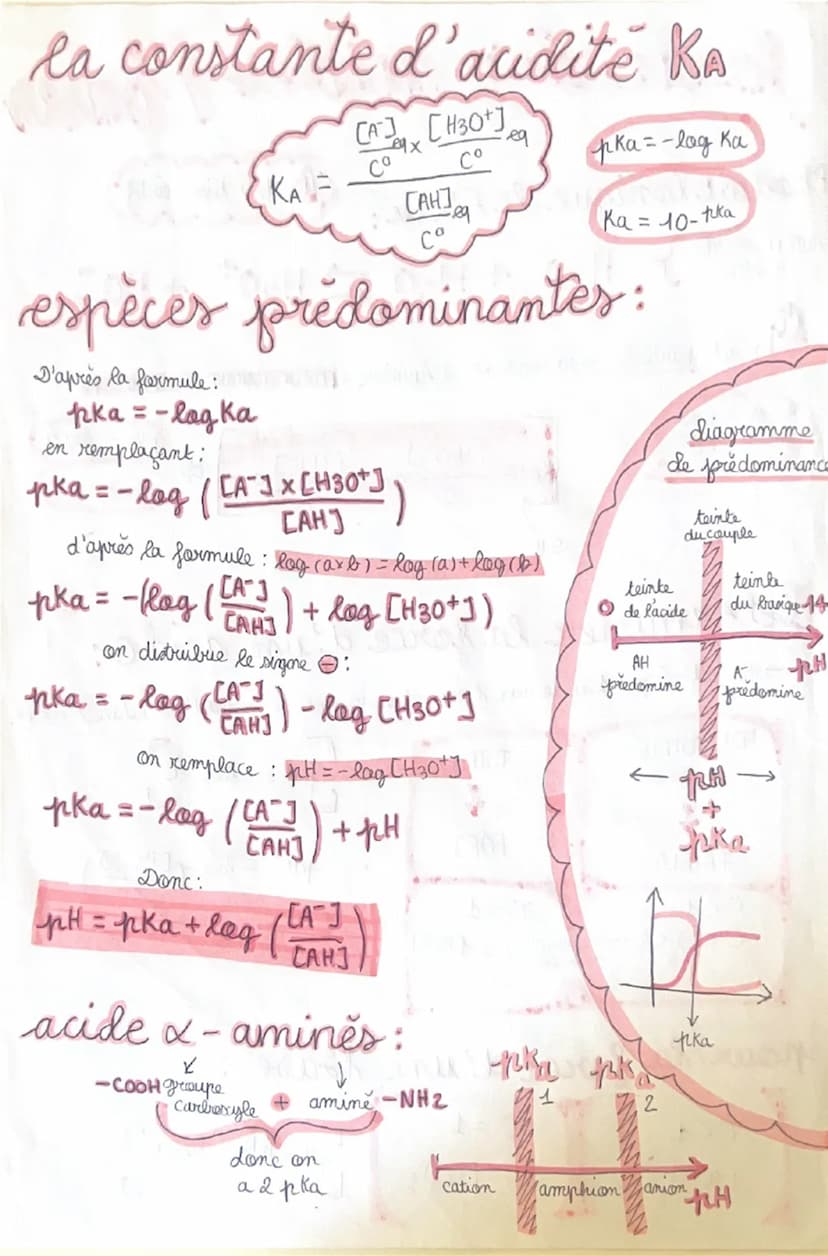 la constante d'acidité KA
KA = ([A-]eq/C° x [H3O+]eq/C°) / ([AH]eq/C°)
pKa = -log Ka
Ka = 10-pKa
espèces prédominantes :
D'après la formule :
pKa = -log Ka
en remplaçant :
pKa = -log ([A-] x [H3O+] / [AH])
d'après la formule : log (a x b) = log (a) + log (b)
pKa = -(log ([A-]/[AH]) + log [H3O+])
on distribue le signe ⊖ :
pKa = -log ([A-]/[AH]) - log [H3O+]
on remplace : pH = -log [H3O+]
pKa = -log ([A-]/[AH]) + pH
Donc :
pH = pKa + log ([A-]/[AH])
diagramme
de prédominance
teinte
du couple
teinte
de l'acide
teinte
du basique
0
14
pH
AH
prédomine
A-
prédomine
← pH →
+
pKa
pKa
acide α-aminés :
-COOH groupe
carboxyle + aminé -NH2
donc on
a 2 pKa
pKa 1
pKa 2
cation
amphion
anion
pH